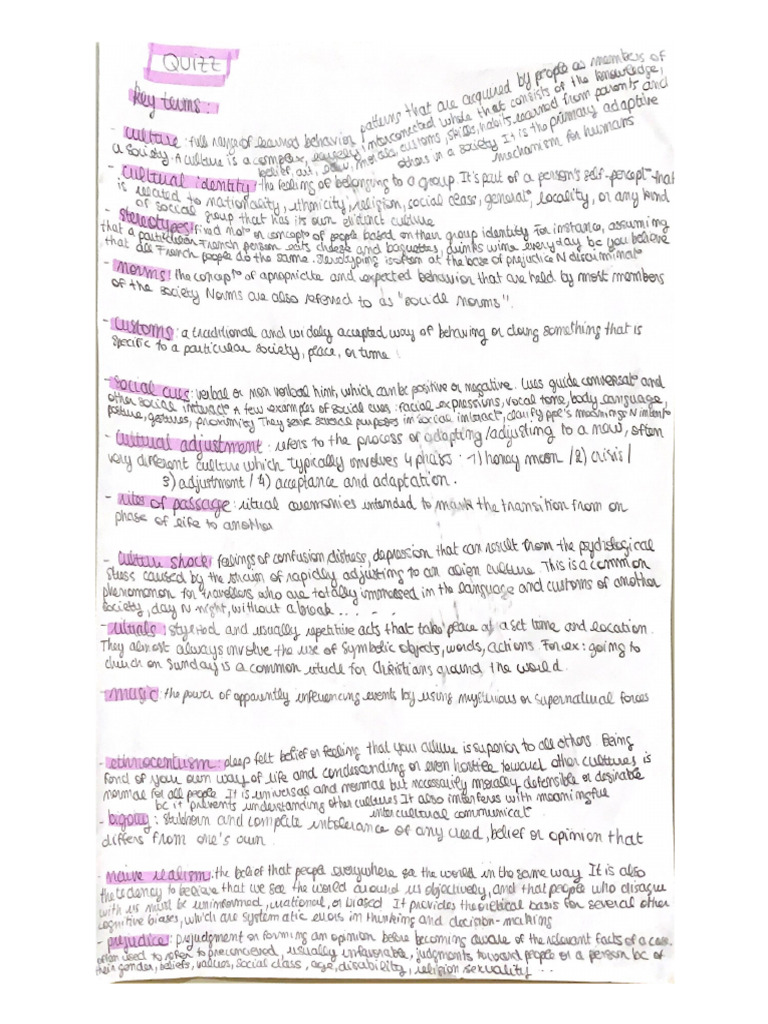 QUIZZ
key terms:
- culture: full range of learned behavior patterns that are acquired by people as members of
a society. A culture is a complex, interconnected whole that consists of the knowledge,
belief, art, law, morals, customs, skills, habits learned from parents and
others in a society It is the primary adaptive
mechanism for humans
- cultural identity: the feeling of belonging to a group. It's part of a person's self-percept° that
is related to nationality, ethnicity, religion, social class, generat°, locality, or any kind
of social group that has its own distinct culture
- stereotypes: fixed not° or concepts of people based on their group identity For instance, assuming
that a particular French person eats cheese and baguettes, drinks wine everyday bc you believe
that all French people do the same. Stereotyping is often at the base of prejudice N discriminat°
- norms: the concept° of appropriate and expected behavior that are held by most members
of the society Norms are also referred to as "social norms".
- customs: a traditional and widely accepted way of behaving or doing something that is
specific to a particular society, place, or time
- social cues: verbal or non verbal hint, which can be positive or negative. Cues guide conversat° and
other social interact° A few examples of social cues: facial expressions, vocal tone, body language,
posture, gestures, proximity They serve several purposes in social interact, clarify ppl's meanings N intent°
- cultural adjustment: refers to the process of adapting/adjusting to a new, often
very different culture which typically involves 4 phases: 1) honey moon /2) crisis/
3) adjustment/ 4) acceptance and adaptation.
- rites of passage: ritual ceremonies intended to mark the transition from on
phase of life to another
- culture shock: feelings of confusion, distress, depression that can result from the psychological
stress caused by the strain of rapidly adjusting to an alien culture This is a common
phenomenon for travellers who are totally immersed in the language and customs of another
society, day N night, without a break.....
- rituals: stylized and usually repetitive acts that take place at a set time and location.
They almost always involve the use of symbolic objects, words, actions. For ex: going to
church on Sunday is a common ritual for Christians around the world.
- magic: the power of apparently influencing events by using mysterious or supernatural forces
- ethnocentrism: deep felt belief or feeling that you culture is superior to all others. Being
fond of your own way of life and condescending or even hostile toward other cultures is
normal for all people It is universal and normal but necessarily morally defensible or desirable
bc it prevents understanding other cultures It also interferes with meaningful
intercultural communicat°
- bigotry: stubborn and complete intolerance of any creed, belief or opinion that
differs from one's own
- naive realism: the belief that people everywhere see the world in the same way It is also
the tendency to believe that we see the world around us objectively, and that people who disagree
with us must be uninformed, irrational, or biased It provides theoretical basis for several other
cognitive biases, which are systematic errors in thinking and decision-making
- prejudice: prejudgment or forming an opinion before becoming aware of the relevant facts of a case.
often used to refer to preconceived, usually unfavorable, judgments toward people or a person bc of
their gender, beliefs, values, social class, age, disability, religion sexuality...